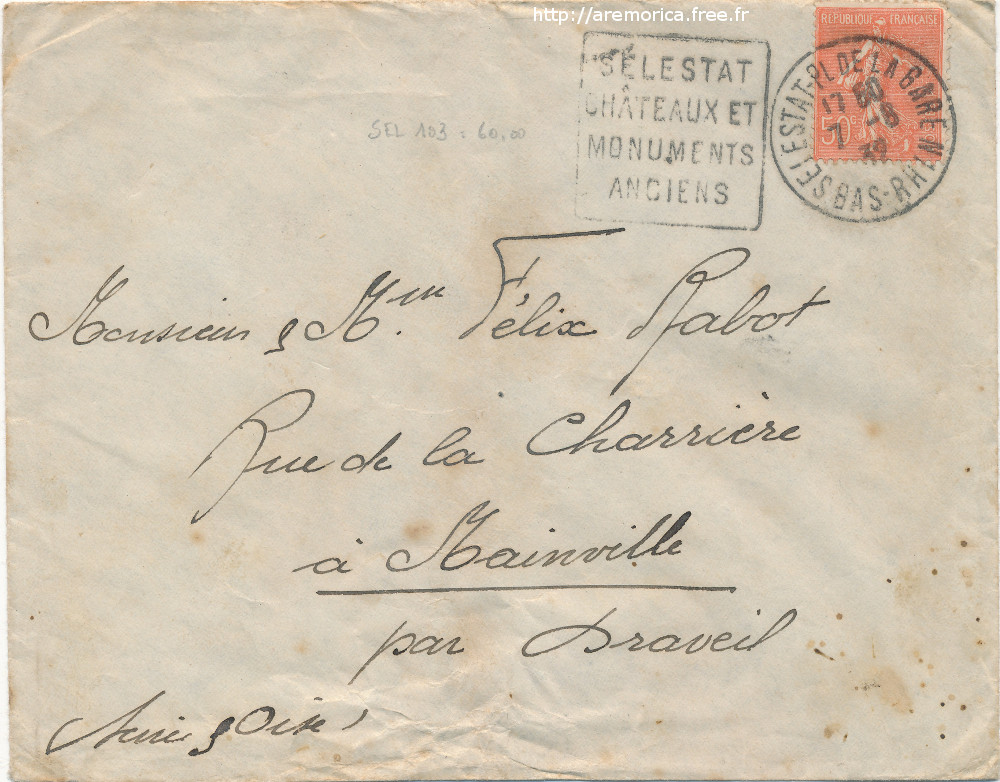 http://aremorica.free.fr
RÉPUBLIQUE FRANÇAISE
50c
SÉLESTAT
CHÂTEAUX ET
MONUMENTS
ANCIENS
SÉLESTAT-PL. DE LA GARE
17 60
7 -8
32
BAS-RHIN
SEL 103 : 60,00
Monsieur & Mme Félix Rabot
Rue de la Charrière
à Mainville
par Draveil
Seine & Oise